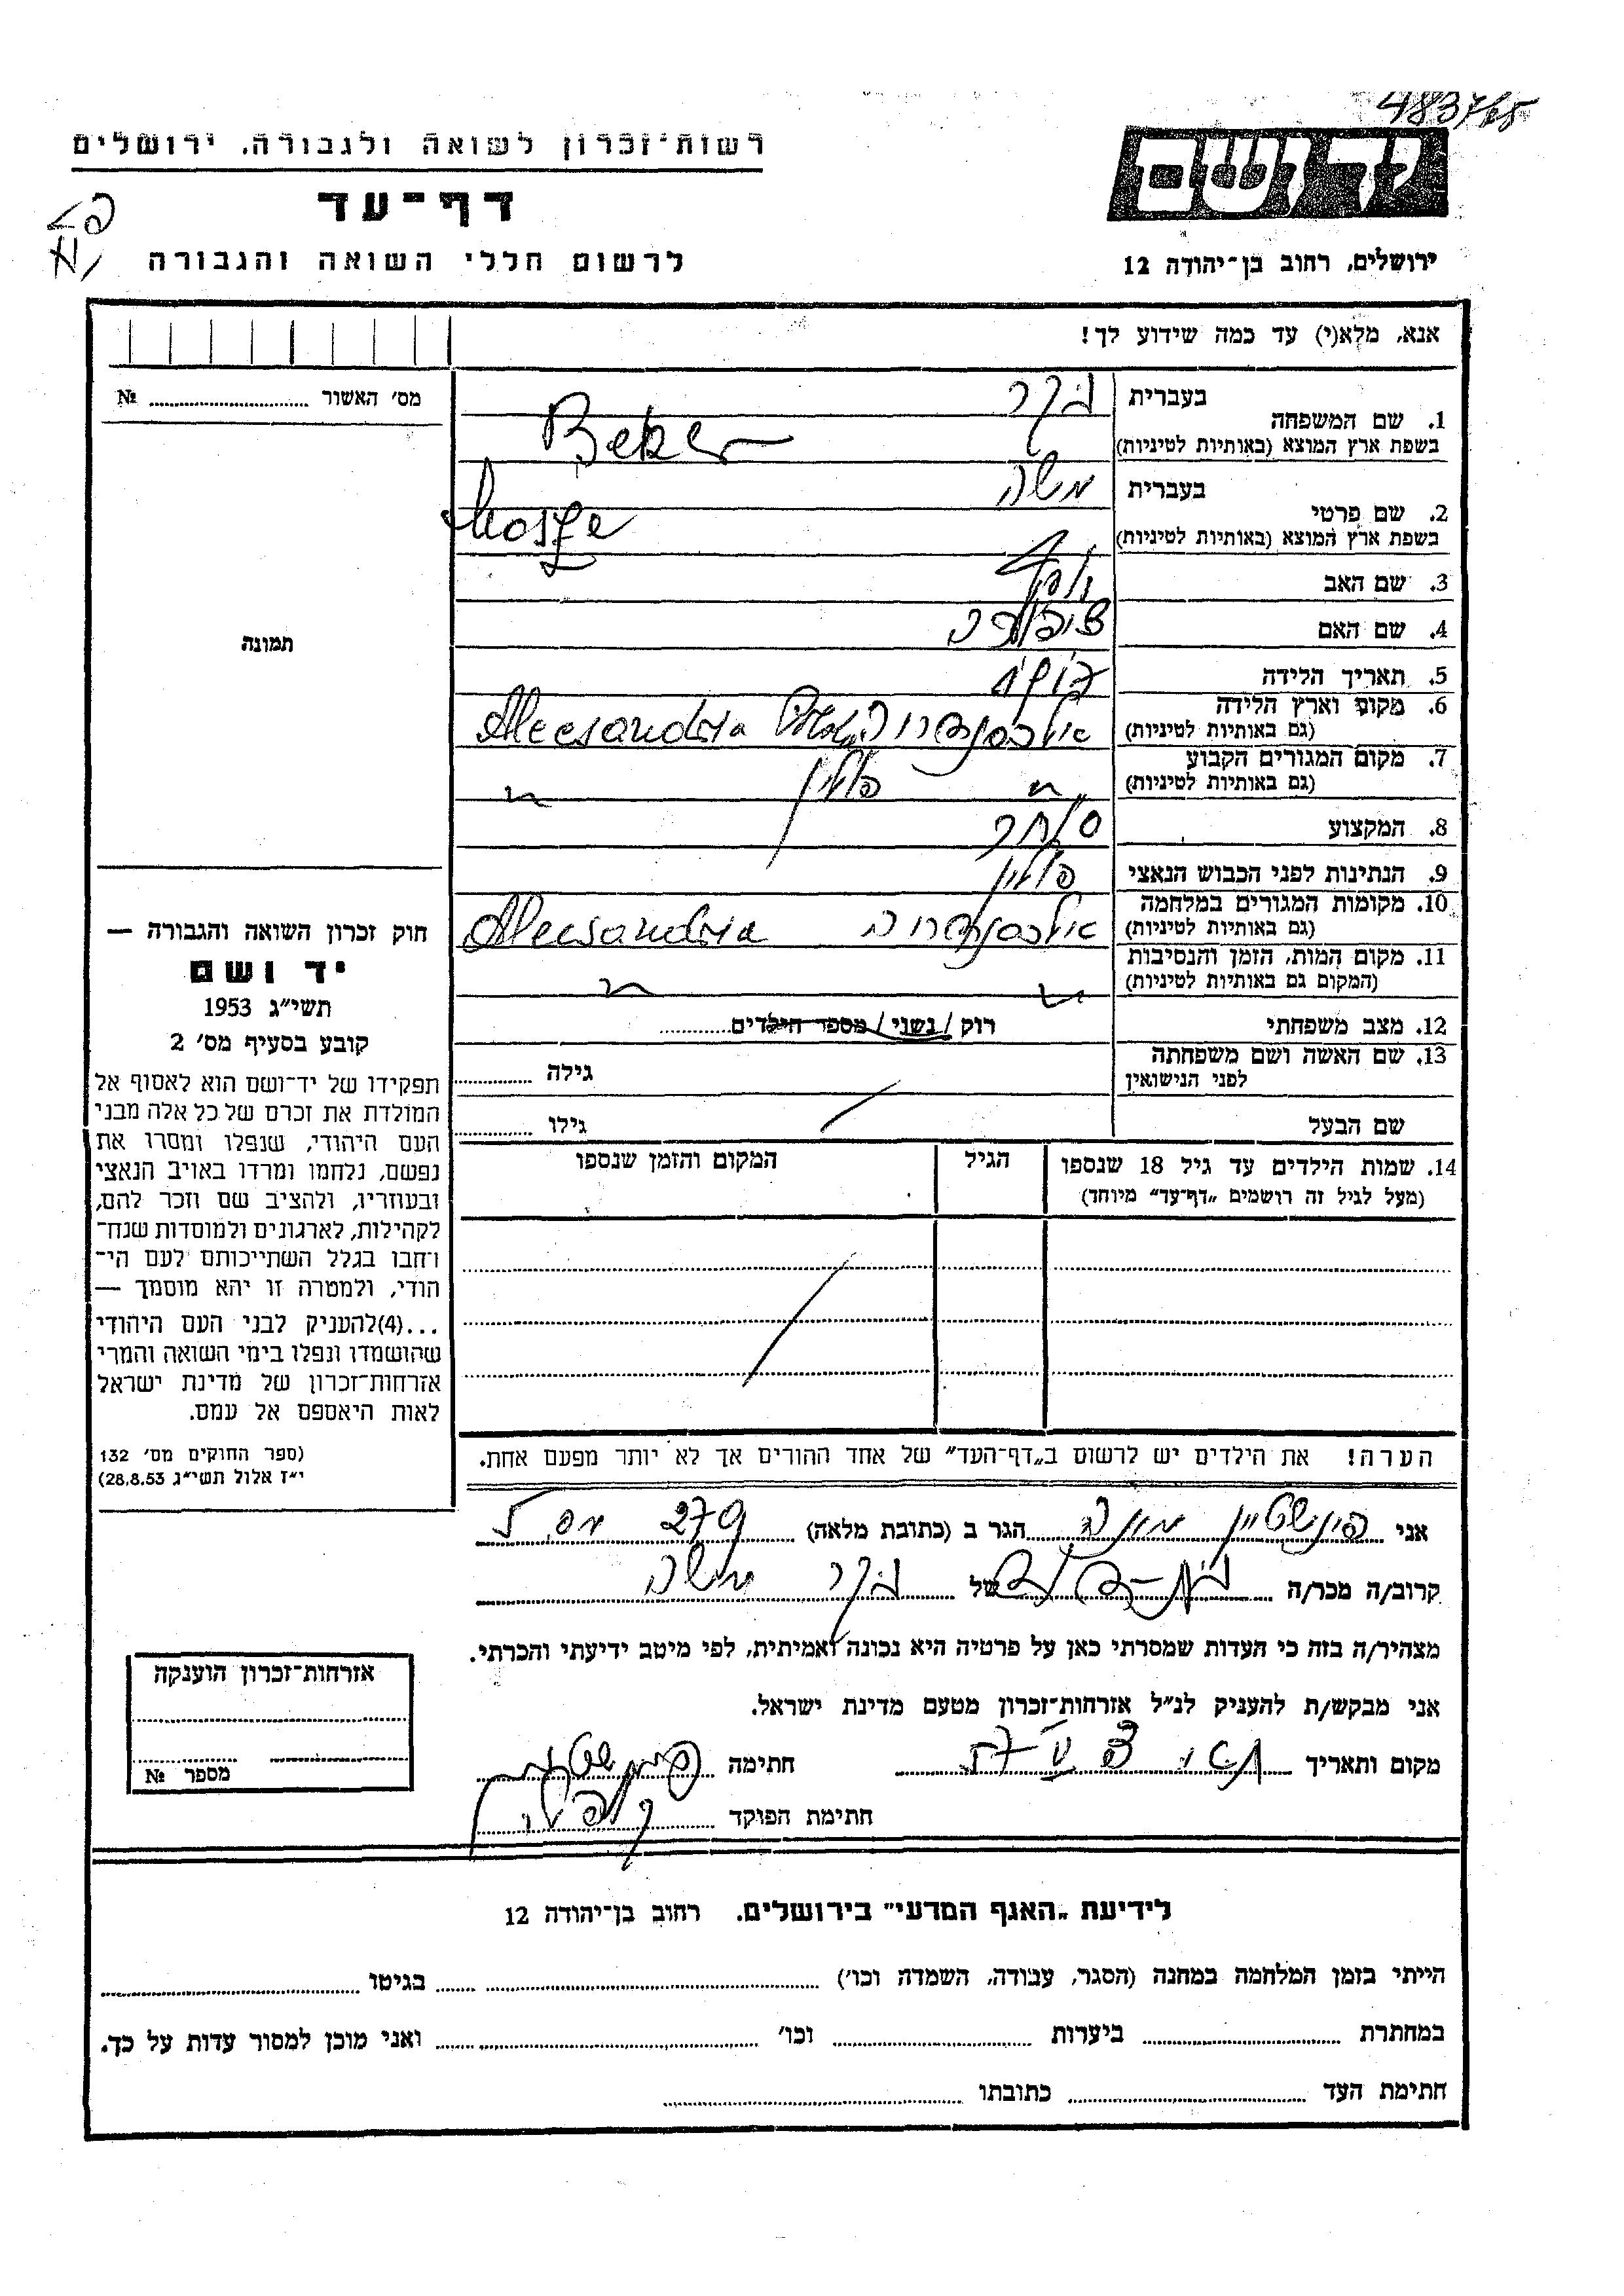 רשות־זכרון לשואה ולגבורה, ירושלים
דף־עד
לרשום חללי השואה והגבורה
יד ושם
ירושלים, רחוב בן־יהודה 12
אנא, מלא(י) עד כמה שידוע לך!
מס׳ האשור № 
תמונה
חוק זכרון השואה והגבורה —
יד ושם
תשי״ג 1953
קובע בסעיף מס׳ 2
תפקידו של יד־ושם הוא לאסוף אל
המולדת את זכרם של כל אלה מבני
העם היהודי, שנפלו ומסרו את
נפשם, נלחמו ומרדו באויב הנאצי
ובעוזריו, ולהציב שם וזכר להם,
לקהילות, לארגונים ולמוסדות שנח־
רבו בגלל השתייכותם לעם הי־
הודי, ולמטרה זו יהא מוסמך —
...(4)להעניק לבני העם היהודי
שהושמדו ונפלו בימי השואה והמרי
אזרחות־זכרון של מדינת ישראל
לאות היאספם אל עמם.
(ספר החוקים מס׳ 132
י״ז אלול תשי״ג 28.8.53)
בעברית בקר
1. שם המשפחה
בשפת ארץ המוצא (באותיות לטיניות) Beker
בעברית משה
2. שם פרטי
בשפת ארץ המוצא (באותיות לטיניות) Mosze
3. שם האב
4. שם האם ציפורה
5. תאריך הלידה
6. מקום וארץ הלידה
(גם באותיות לטיניות) אלכסנדריה Alecsandria
7. מקום המגורים הקבוע
(גם באותיות לטיניות) פולין
8. המקצוע סוחר
9. הנתינות לפני הכבוש הנאצי פולין
10. מקומות המגורים במלחמה
(גם באותיות לטיניות) אלכסנדריה Alecsandria
11. מקום המות, הזמן והנסיבות
(המקום גם באותיות לטיניות)
12. מצב משפחתי רוק / נשוי / מספר הילדים
13. שם האשה ושם משפחתה
לפני הנישואין גילה
שם הבעל גילו
14. שמות הילדים עד גיל 18 שנספו הגיל המקום והזמן שנספו
(מעל לגיל זה רושמים „דף־עד״ מיוחד)
הערה! את הילדים יש לרשום ב„דף־העד״ של אחד ההורים אך לא יותר מפעם אחת.
אני פינשטיין מונה הגר ב (כתובת מלאה) 279
קרוב/ה מכר/ה בת-דוד של בקר משה
מצהיר/ה בזה כי העדות שמסרתי כאן על פרטיה היא נכונה ואמיתית, לפי מיטב ידיעתי והכרתי.
אני מבקש/ת להעניק לנ״ל אזרחות־זכרון מטעם מדינת ישראל.
מקום ותאריך חתימה
חתימת הפוקד
אזרחות־זכרון הוענקה
מספר №
לידיעת „האגף המדעי״ בירושלים, רחוב בן־יהודה 12
הייתי בזמן המלחמה במחנה (הסגר, עבודה, השמדה וכו׳) בגיטו
במחתרת ביערות וכו׳ ואני מוכן למסור עדות על כך.
חתימת העד כתובתו